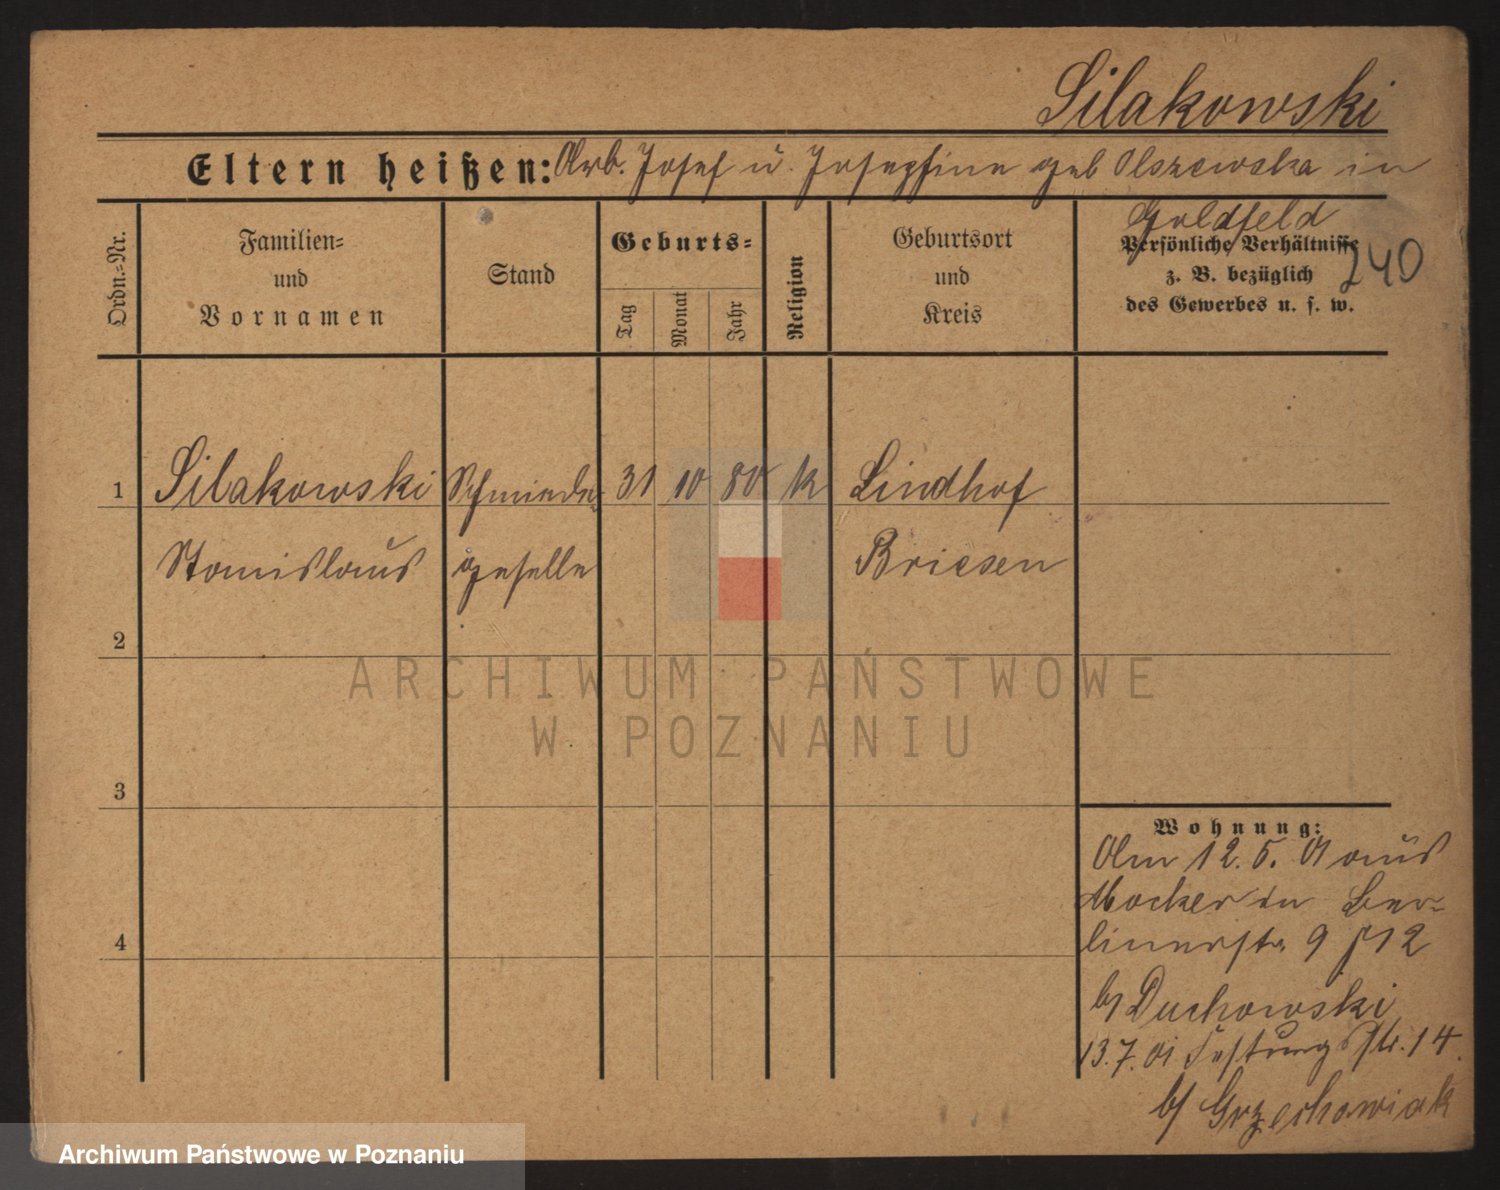 Silakowski
Eltern heißen: Arb. Josef u. Josephine geb Olszewska in
Goldfeld
240
Ordn.-Nr.
Familien-
und
Vornamen
Stand
Geburts-
Tag
Monat
Jahr
Religion
Geburtsort
und
Kreis
Persönliche Verhältnisse
z. B. bezüglich
des Gewerbes u. s. w.
1 Silakowski Schmiede- 31 10 80 k Lindhof
Stanislaus geselle Briesen
2
3
4
Wohnung:
Am 12. 5. 01 aus
Mocker in Ber-
linerstr 9 12
b/ Duchowski
13.7.01 Festungsstr. 14.
b/ Grzechowiak
ARCHIWUM PAŃSTWOWE
W POZNANIU
Archiwum Państwowe w Poznaniu